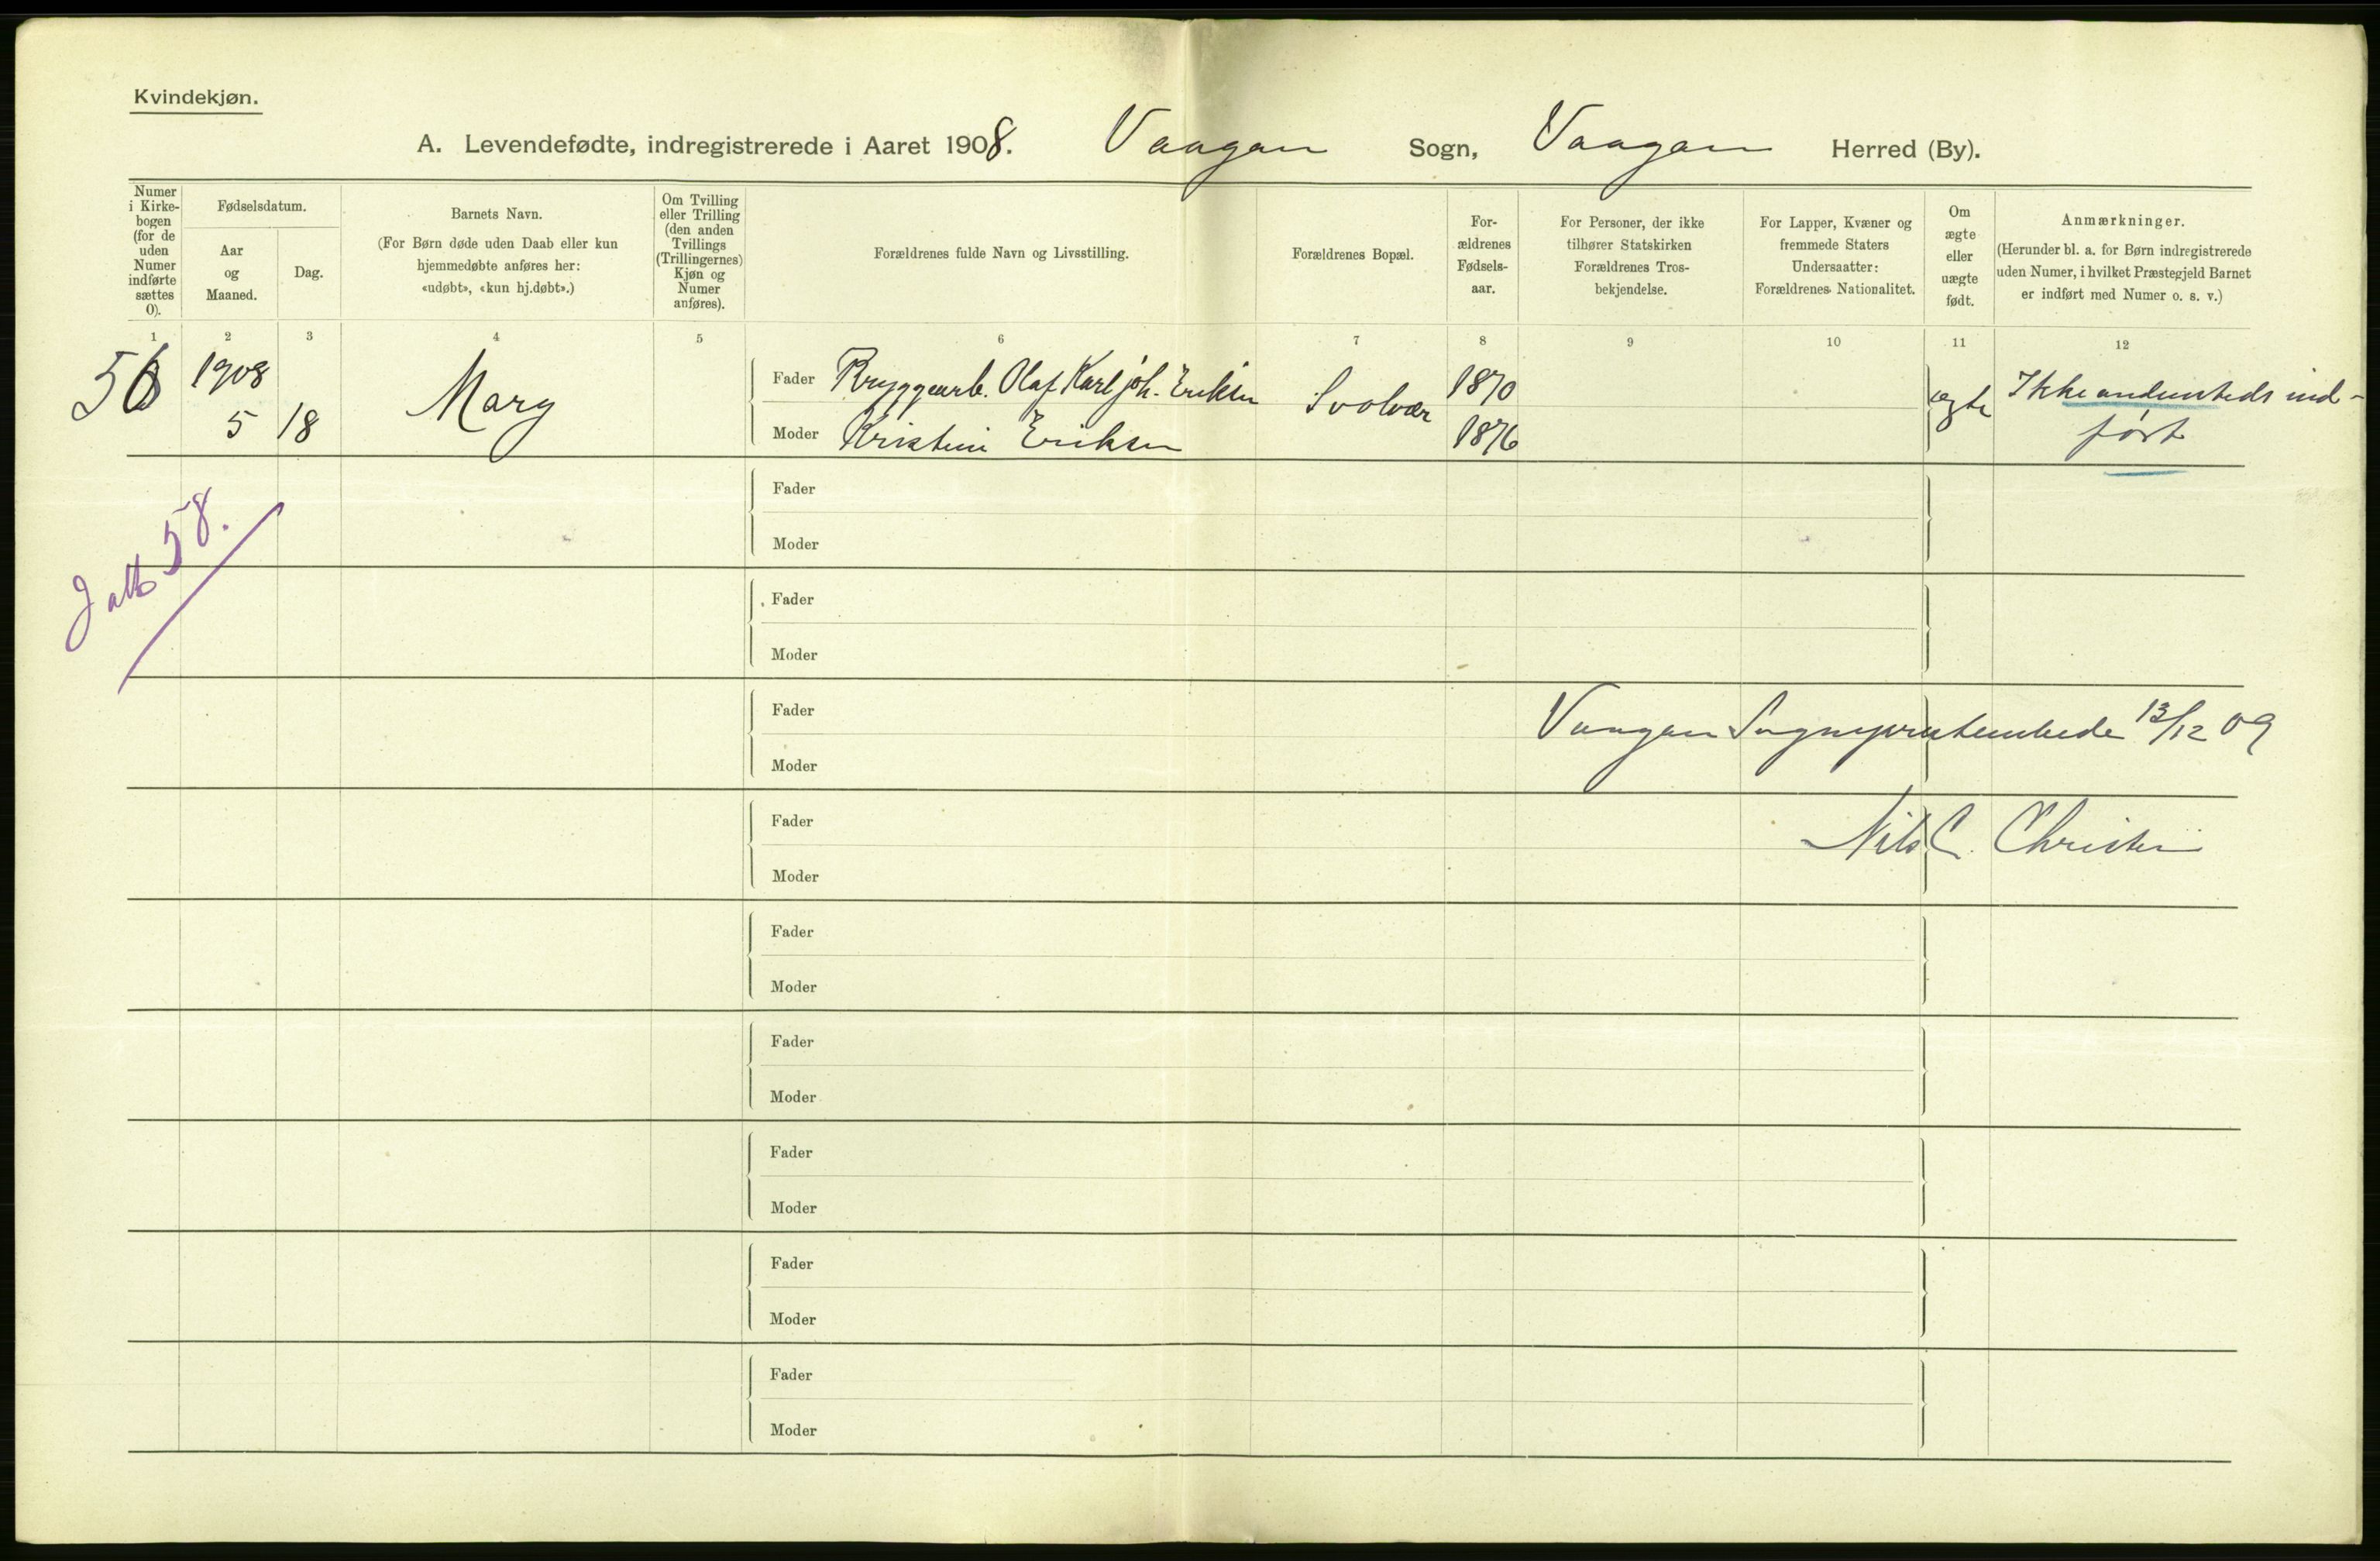 Kvindekjøn.
A. Levendefødte, indregistrerede i Aaret 1908. Vaagan Sogn, Vaagan Herred (By).
Numer i Kirkebogen (for de uden Numer indførte sættes 0).
Fødselsdatum.
Aar og Maaned.
Dag.
Barnets Navn.
(For Børn døde uden Daab eller kun
hjemmedøbte anføres her:
«udøbt», «kun hj.døbt».)
Om Tvilling
eller Trilling
(den anden
Tvillings
(Trillingernes)
Kjøn og
Numer
anføres).
Forældrenes fulde Navn og Livsstilling.
Forældrenes Bopæl.
For-
ældrenes
Fødsels-
aar.
For Personer, der ikke
tilhører Statskirken
Forældrenes Tros-
bekjendelse.
For Lapper, Kvæner og
fremmede Staters
Undersaatter:
Forældrenes Nationalitet.
Om
ægte
eller
uægte
født.
Anmærkninger.
(Herunder bl. a. for Børn indregistrerede
uden Numer, i hvilket Præstegjeld Barnet
er indført med Numer o. s. v.)
1 2 3 4 5 6 7 8 9 10 11 12
1908
5 18 Mary
Fader Bryggearb. Olaf Karl Joh. Eriksen Svolvær 1870
Moder Kristine Eriksen 1876
ægte Ikke andensteds ind-
ført
Fader
Moder
Ialt 58.
Fader
Moder
Fader
Moder
Vaagan Sogneprestembede 13/12 09
Fader
Moder
Nils C.
Fader
Moder
Fader
Moder
Fader
Moder
Fader
Moder
Fader
Moder